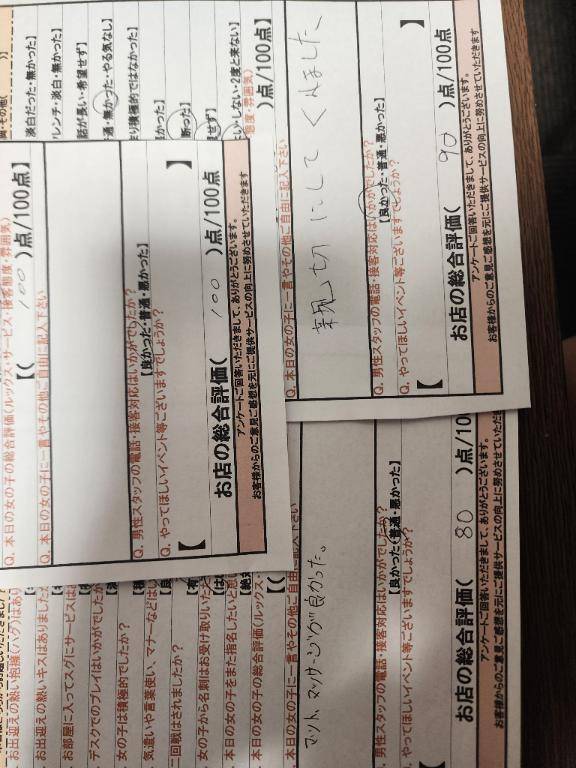 Q. 本日の女の子の総合評価(ルックス・サービス・接客態度・雰囲気)
【( 100 )点/100点】
Q. 本日の女の子に一言やその他ご自由に記入下さい
Q. 男性スタッフの電話・接客対応はいかがでしたか?
【良かった・普通・悪かった】
Q. やってほしいイベント等ございますでしょうか?
【 】
お店の総合評価( 100 )点/100点
アンケートご回答いただきまして、ありがとうございます。
お客様からのご意見ご感想を元にご提供サービスの向上に努めさせていただきます
淡白だった・無かった】
レンチ・淡白・無かった】
話が長い・希望せず】
通・無かった・やる気なし】
り積極的ではなかった】
かった】
断った】
せず】
ない・2度と来ない】
態度・雰囲気)
)点/100点
Q. 本日の女の子に一言やその他ご自由に記入下さい
親切にしてくれました、
Q. 男性スタッフの電話・接客対応はいかがでしたか?
【良かった・普通・悪かった】
Q. やってほしいイベント等ございますでしょうか?
【 】
お店の総合評価( 90 )点/100点
アンケートご回答いただきまして、ありがとうございます。
お客様からのご意見ご感想を元にご提供サービスの向上に努めさせていただきます
お出迎えの熱い抱擁(ハグ)はあり
お出迎えの熱いキスはありました
お部屋に入ってスグにサービスは
デスクでのプレイはいかがでした
女の子は積極的でしたか?
気遣いや言葉使い、マナーなどは
二回戦はされましたか?
女の子から名刺はお受け取りいた
本日の女の子をまた指名したいと思
本日の女の子の総合評価(ルックス・
Q. 本日の女の子に一言やその他ご自由に記入下さい
マット、マッサージが良かった。
Q. 男性スタッフの電話・接客対応はいかがでしたか?
【良かった・普通・悪かった】
Q. やってほしいイベント等ございますでしょうか?
【
お店の総合評価( 80 )点/10
アンケートご回答いただきまして、ありがとうございます。
お客様からのご意見ご感想を元にご提供サービスの向上に努めさせていただき